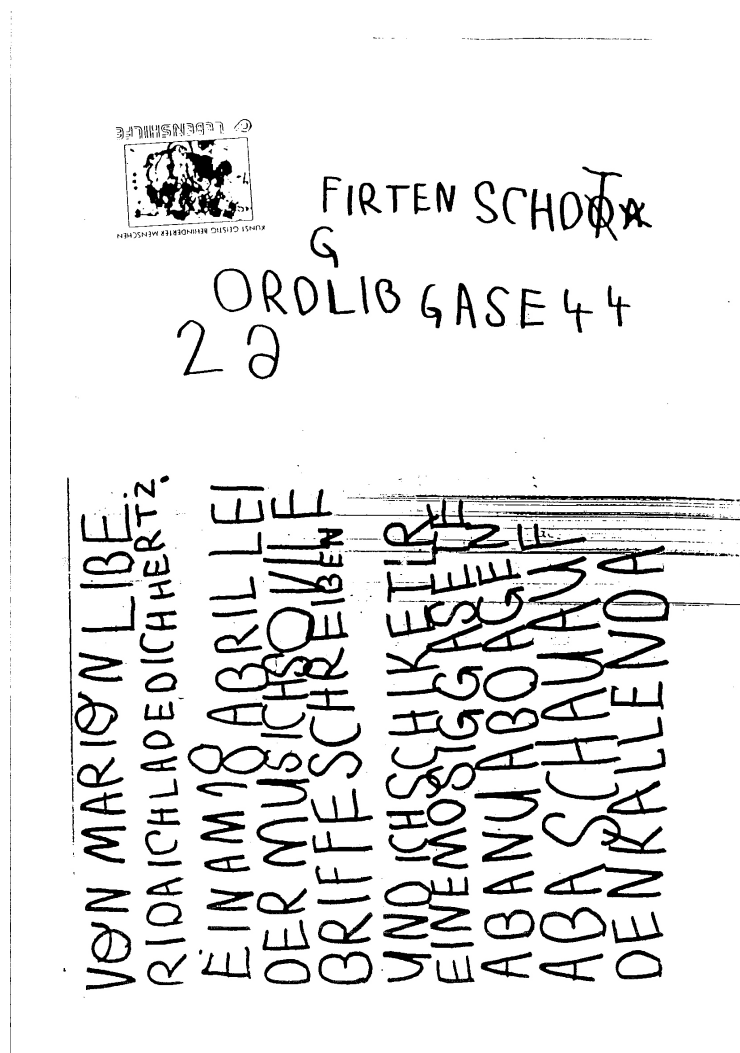 © LEBENSHILFE
KUNST GEISTIG BEHINDERTER MENSCHEN
FIRTEN SCHO
G
ORDLIB GASE 44
22
VON MARION LIBE
RIDAICHLADEDICHHERTZ.
EINAM 8 ABRIL LEI
DER MUSICHSO VILE
BRIFFE SCHREIBEN
UND ICHSCHIKETIR
EINEMOSIGGASETTE
ABANUABOAGEN
ABA SCHAUAUF
DENKALLENDA